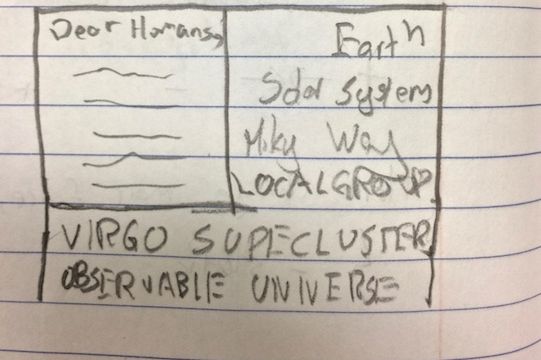 Dear Humans,
Earth
Solar System
Milky Way
LOCAL GROUP
VIRGO SUPECLUSTER
OBSERVABLE UNIVERSE